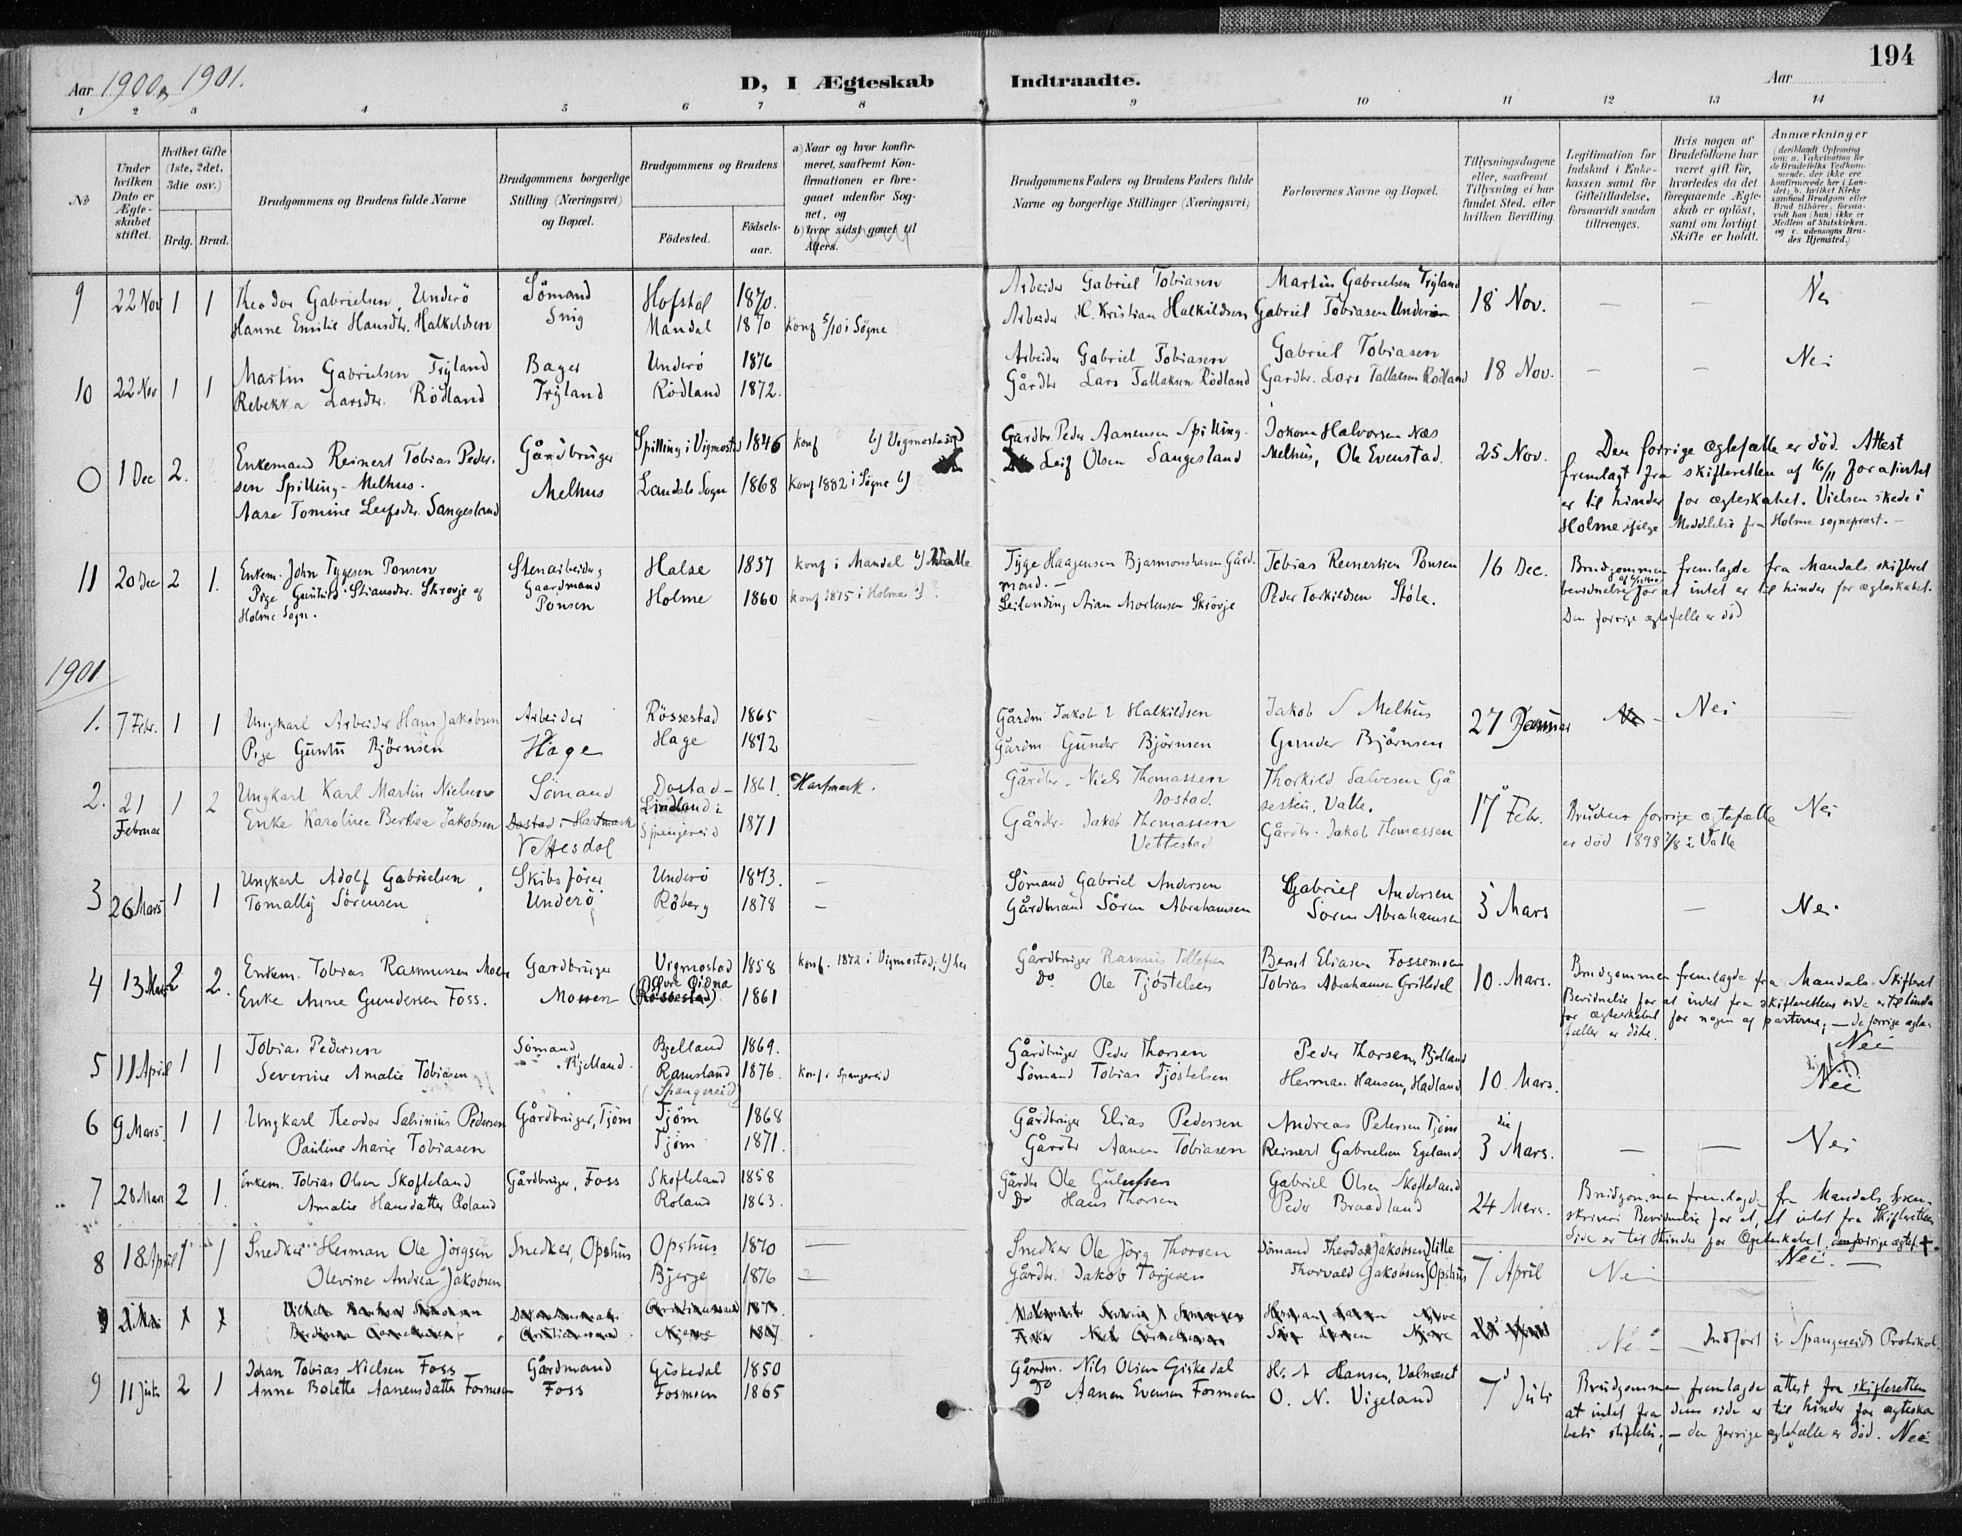 194
Aar 1900 og 1901.
D, I Ægteskab Indtraadte.
Aar
1 2 3 4 5 6 7 8 9 10 11 12 13 14
No
Under hvilken Dato er Ægteskabet stiftet.
Hvilket Gifte (1ste, 2det, 3die osv.)
Brdg. Brud.
Brudgommens og Brudens fulde Navne
Brudgommens borgerlige Stilling (Næringsvei) og Bopæl.
Brudgommens og Brudens
Fødested.
Fødselsaar.
a) Naar og hvor konfirmeret, saafremt Konfirmationen er foregaaet udenfor Sognet, og
b) hvor sidst gaaet til Alters.
Brudgommens Faders og Brudens Faders fulde Navne og borgerlige Stillinger (Næringsvei)
Forlovernes Navne og Bopæl.
Tillysningsdagene eller, saafremt Tillysning ei har fundet Sted, efter hvilken Bevilling.
Legitimation for Indskud i Enkekassen samt for Giftetilladelse, forsaavidt saadan tiltrænges.
Hvis nogen af Brudefolkene har været gift før, hvorledes da det foregaaende Ægteskab er opløst, samt om lovligt Skifte er holdt.
Anmærkninger
9 22 Nov 1 1 Theodor Gabrielsen Underö Sömand Hofstal 1870. Arbeider Gabriel Tobiasen Martin Gabrielsen Tryland 18 Nov. — — Nei
Hanne Emilie Hansdtr. Halkildsen Snig Mandal 1870 konf 5/10 i Søgne Arbeider H. Kristian Halkildsen Gabriel Tobiasen Underöen
10 22 Nov 1 1 Martin Gabrielsen Tryland Bager Underö 1876 Arbeider Gabriel Tobiasen Gabriel Tobiasen 18 Nov. — — Nei
Rebekka Larsdtr. Rödland Tryland Rödland 1872. Gårdbr Lars Tallaksen Rödland Gardbr. Lars Tallaksen Rödland
0 1 Dec 2. Enkemand Reinert Tobias Pedersen Spilling - Melhus. Gårdbruger Spilling i Vigmostad 1846 konf b) Vigmostad Gardbr. Peder Aanensen Spilling. Jokom Halvorsen Næs 25 Nov.
Aase Tomine Leifsdtr. Sangesland Melhus Laudals Sogn 1868 konf 1882 i Søgne b) Leif Olsen Sangesland Melhus, Ole Evenstad.
Den forrige ægtefælle er död. Attest
fremlagt fra skifteretten af 16/11 for at intet
er til hinder for ægteskabet. Vielsen skede i
Holme ifølge Meddelelse fra Holme sognepræst. —
11 20 Dec 2 1. Enkem. John Tygesen Ponsen Stenarbeider Halse 1837 konf i Mandal b) Valle Tyge Haagensen Bjarmonshavn Gårdmand. — Tobias Reinertsen Ponsen 16 Dec.
Pige Gunhild Stiansdtr. Skrovje af Gaardmand Holme 1860 konf 1875 i Holme b) ? Leilending Stian Mortensen Skrovje Peder Torkildsen Stöle.
Holme Sogn. Ponsen
Brudgommen fremlagde fra Mandals skifteret
bevidnelse for at intet er til hinder for ægteskabet.
Den forrige ægtefælle er död
1901
1. 7 Febr. 1 1 Ungkarl Arbeider Hans Jakobsen Arbeider Rössestad 1865 Gårdm Jakob Halkildsen Jakob Melhus 27 Januar Nei
Pige Guntu Björnsen Håge Hage 1872 Gårdm Gunder Björnsen Gunder Björnsen
2. 21 Februar 1 2 Ungkarl Karl Martin Nielsen Sömand Dostad 1861. Hartmark. Gårdbr. Niels Thomassen Dostad. Thorkild Salvesen Gåsesten, Valle. 17 Febr.
Enke Karoline Berthea Jakobsen Dostad i Hartmark Lindland i Spangereid 1871 Gårdbr. Jakob Thomassen Vettestad Gårdbr. Jakob Thomassen
Vettesdal
Brudens forrige ægtefælle
er död 1898 i Valle Nei
3 26 Mars 1 1 Ungkarl Adolf Gabrielsen Skibsförer Underö 1873. — Sömand Gabriel Andersen Gabriel Andersen 3 Mars — Nei
Tomally Sörensen Underö Röberg 1878 — Gårdmand Sören Abrahamsen Sören Abrahamsen
4 13 Mars 2 2. Enkem. Tobias Rasmussen Moen Gardbruger Vigmostad 1858 konf. 1872 i Vigmostad; b) her Gårdbruger Rasmus Tollefsen Bernt Eliasen Fossemoen 10. Mars.
Enke Anne Gundersen Foss. Mossen Øvre Øidna (Rössestad) 1861 Do Ole Tjöstelsen Tobias Abrahamsen Gritledal
Brudgommen fremlagde fra Mandals Skifteret
Bevidnelse for at intet fra skifterettens side er til hinder
for ægteskabet for nogen af parterne; — de forrige ægtefæller er döde.
Nei
5 11 April 1 1 Tobias Pedersen Sömand Bjelland 1869. Gårdbruger Peder Thorsen Peder Thorsen, Bjelland 10. Mars. Nei
Severine Amalie Tobiasen Bjelland. Ramsland (Spangereid) 1876. konf. i Spangereid Sömand Tobias Tjostelsen Herman Hansen, Hadland
6 9 Mars 1 1 Ungkarl Theodor Salvinius Pedersen Gårdbruger, Tjöm Tjöm 1868 Gårdbruger Elias Pedersen Andreas Petersen Tjöm 3die Mars. — — Nei
Pauline Marie Tobiasen Tjöm 1871. Gårdbr Aanen Tobiasen Reinert Gabrielsen Egeland
7 28 Mars 2 1. Enkem. Tobias Olsen Skofteland Gårdbruger, Foss Skofteland 1858 Gårdbr Ole Gulufsen Gabriel Olsen Skofteland 24 Mars.
Amalie Hansdatter Roland Roland 1863. Do Hans Thorsen Peder Braadland
Brudgommen fremlagde fra Mandals Sorenskriveri Bevidnelse for at, at intet fra Skifterettens
Side er til Hinder for Ægteskabet, den forrige ægtef. +.
8 18 April 1 1 Snedker Herman Ole Jörgsen Snedker, Opshus Opshus 1870 — Snedker Ole Jörg Thorsen Sömand Theodor Jakobsen Lille 7 April Nei Nei. —
Olevine Andrea Jakobsen Bjerge 1876 — Gårdbr. Jakob Torjesen Thorvald Jakobsen Opshus
Nei — Indfört i Spangereids Protokol.
9 11 Juli 2 1 Johan Tobias Nielsen Foss Gårdmand Giskedal 1850 Gårdm. Nils Olsen Giskedal H. A Hansen, Valnæset 7 Juli
Anne Bolette Aanensdatter Fosmoen Foss Fosmoen 1865 Do Aanen Evensen Fosmoen O. N. Vigeland
Brudgommen fremlagde attest fra skifteretten
at intet fra dens side er til hinder for ægteskabets stiftelse; — den forrige ægtefælle er död. Nei